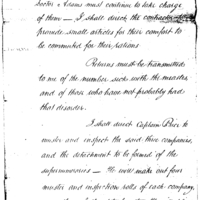 Doctor Adams must continue to take charge
of them — I shall direct the contractor to
provide small articles for their comfort to
be commuted for their rations
Returns must be transmitted
to me of the number sick with the measles
and of those who have not probably had
that disorder.
I shall direct Captain Price to
muster and inspect the said three companies
and the detachment to be formed of the
supernumeraries — He will make out four
muster and inspection rolls of each company